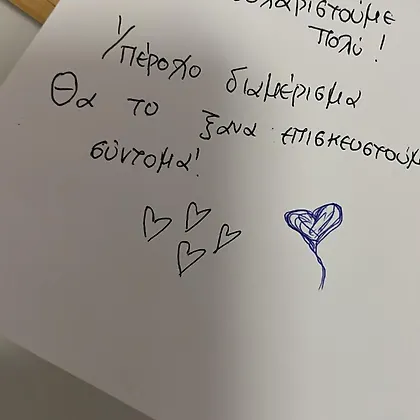 πολύ!
Υπέροχο διαμέρισμα
Θα το ξανα επισκευστούμ
σύντομα!